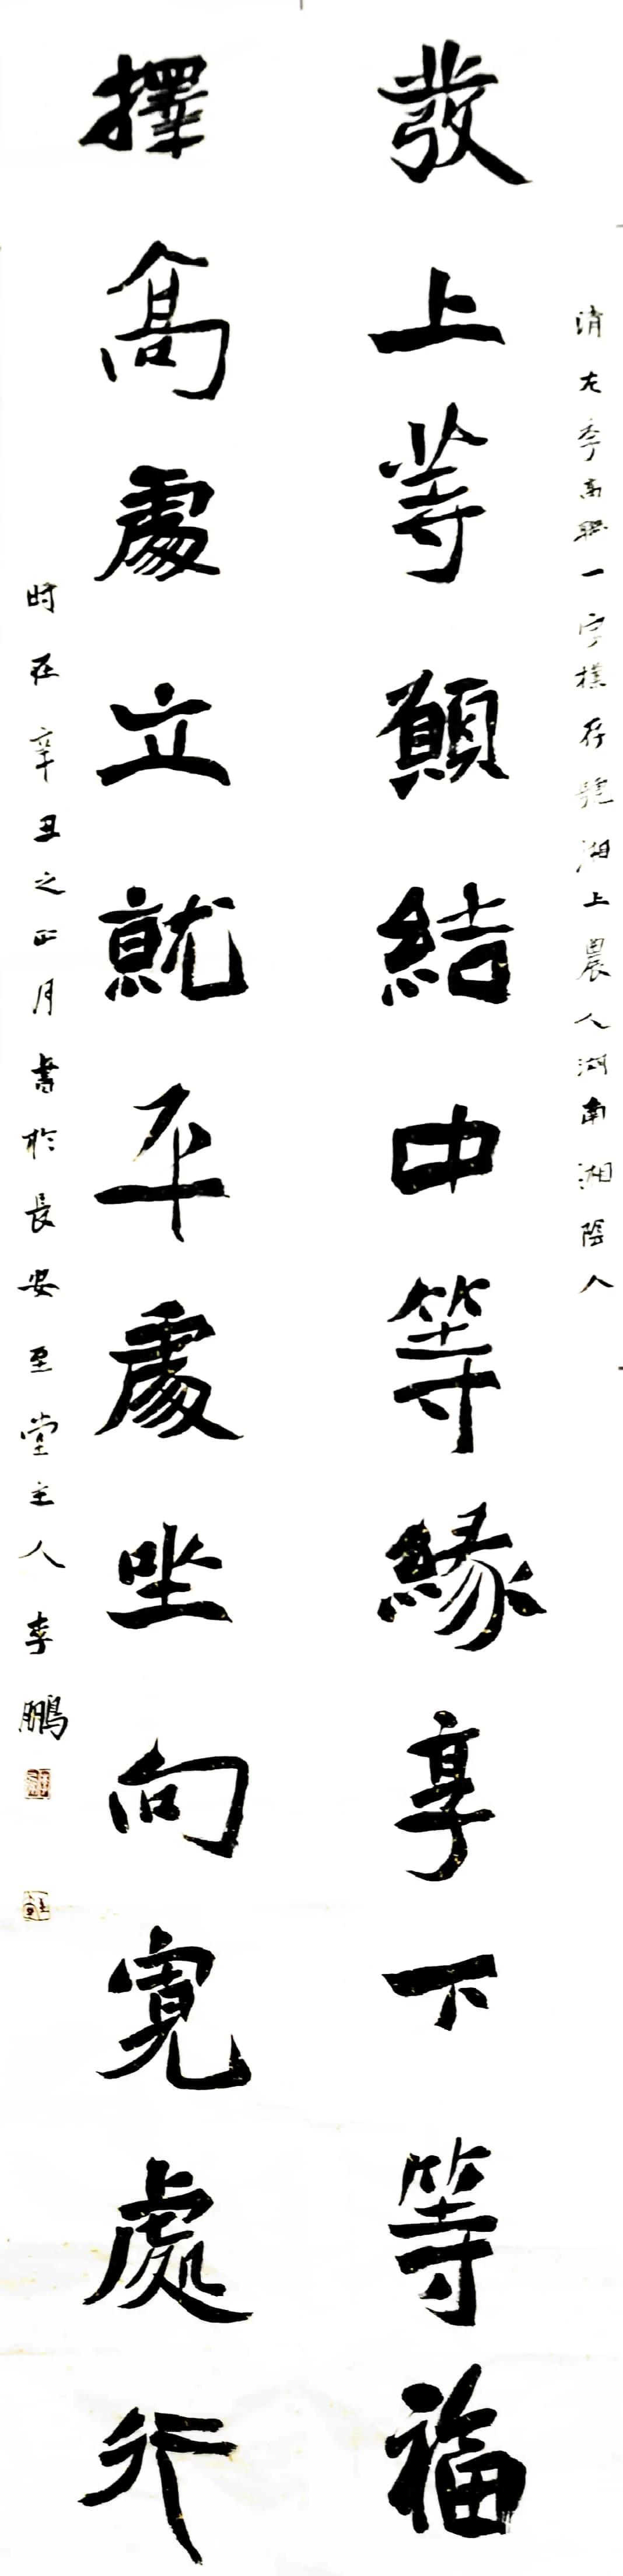 清左季高聯一字樸存號湘上農人湖南湘陰人
發上等願結中等緣享下等福
擇高處立就平處坐向寬處行
時在辛丑之正月書於長安至堂主人李鵬